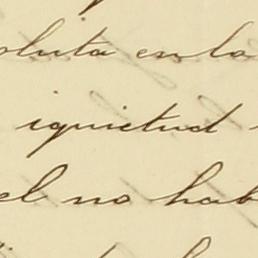 oluta en la
iquietud
el no hab